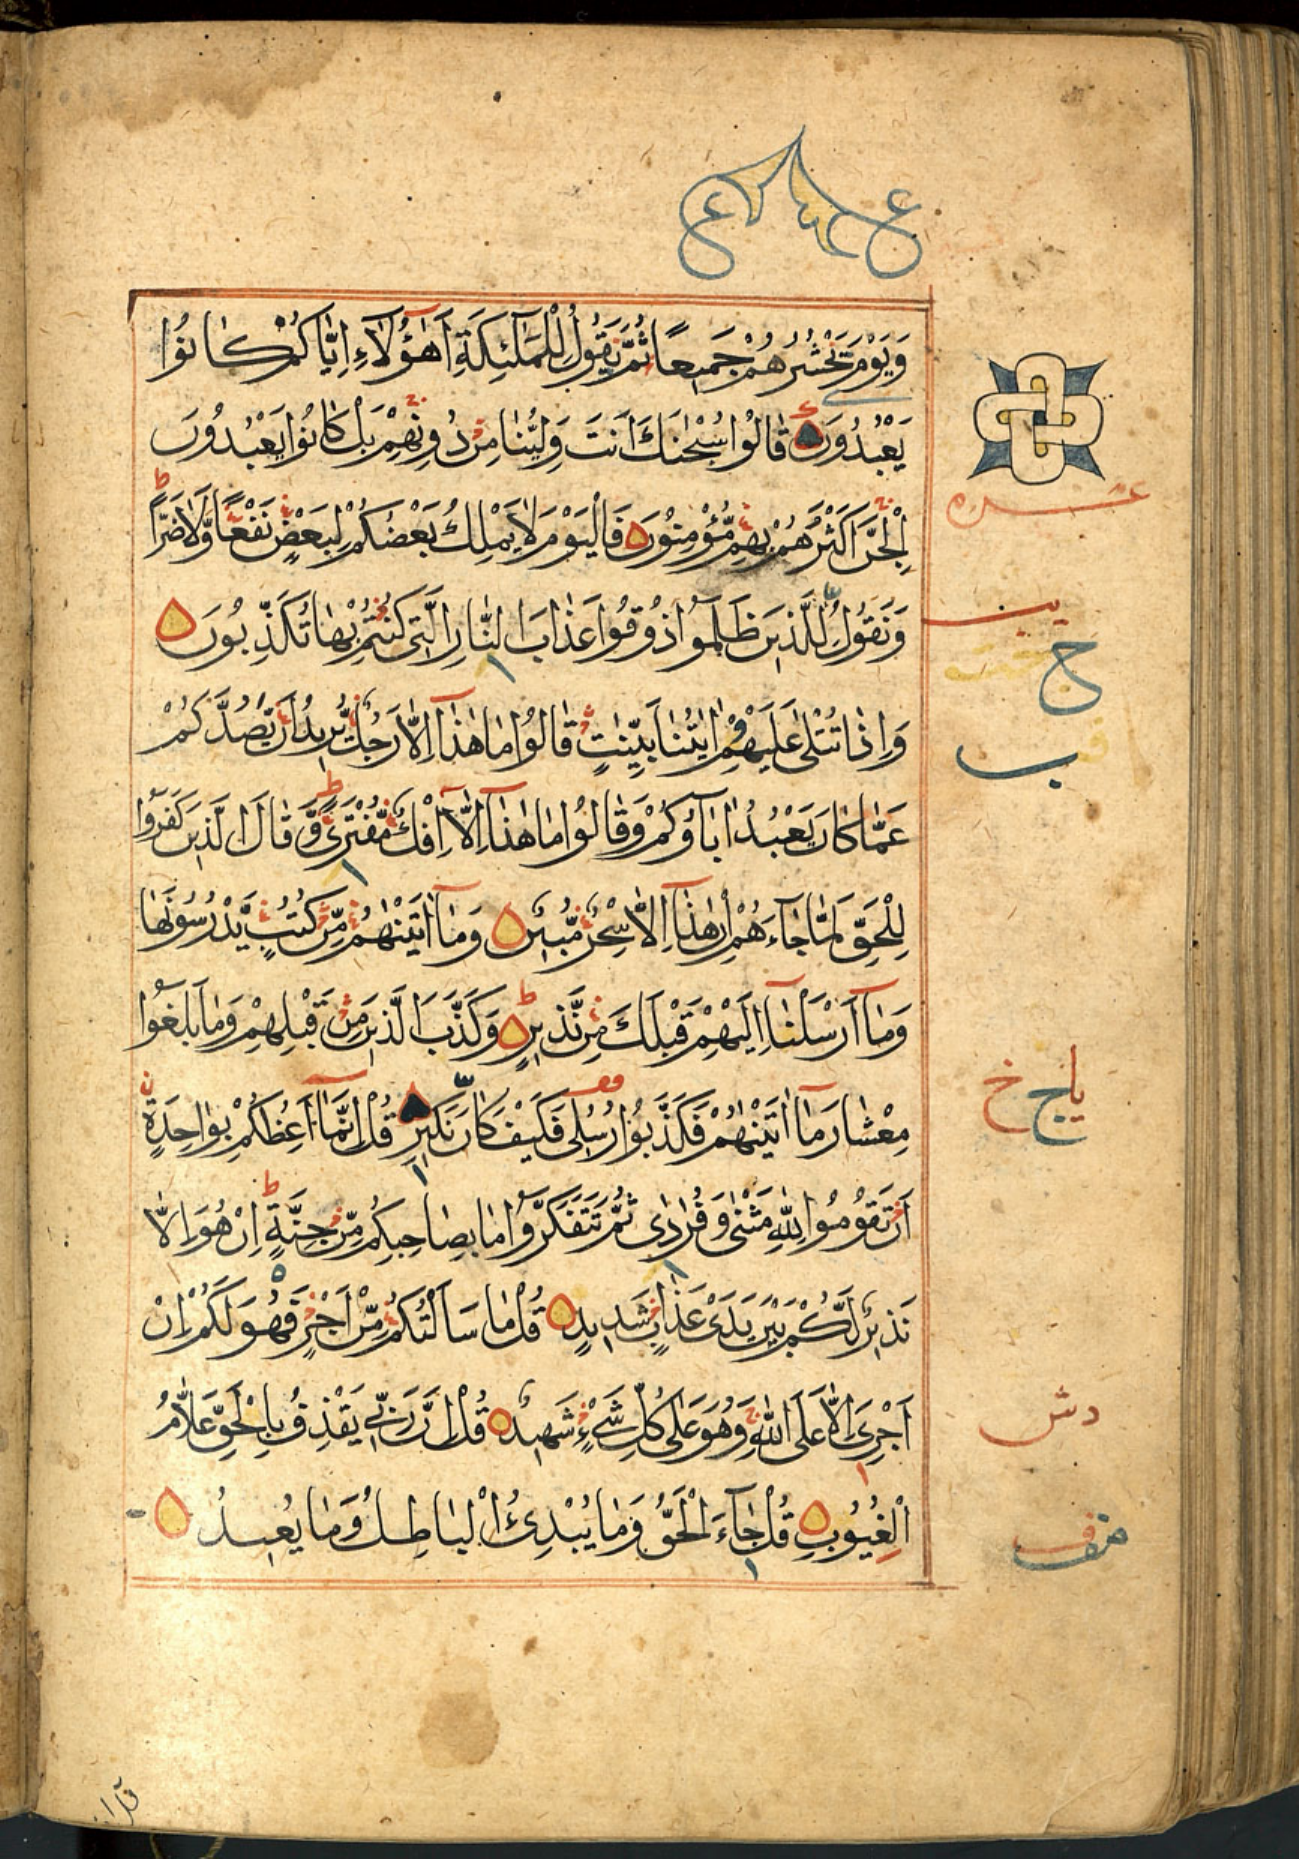 وَيَوْمَ نَحْشُرُهُمْ جَمِيعًا ثُمَّ نَقُولُ لِلْمَلٰٓئِكَةِ اَهٰٓؤُلَآءِ اِيَّاكُمْ كَانُوْا
يَعْبُدُوْنَ قَالُوْا سُبْحٰنَكَ اَنْتَ وَلِيُّنَا مِنْ دُوْنِهِمْ بَلْ كَانُوْا يَعْبُدُوْنَ
الْجِنَّ اَكْثَرُهُمْ بِهِمْ مُّؤْمِنُوْنَ فَالْيَوْمَ لَا يَمْلِكُ بَعْضُكُمْ لِبَعْضٍ نَفْعًا وَّلَا ضَرًّا
وَنَقُوْلُ لِلَّذِيْنَ ظَلَمُوْا ذُوْقُوْا عَذَابَ النَّارِ الَّتِىْ كُنْتُمْ بِهَا تُكَذِّبُوْنَ
وَاِذَا تُتْلٰى عَلَيْهِمْ اٰيٰتُنَا بَيِّنٰتٍ قَالُوْا مَا هٰذَآ اِلَّا رَجُلٌ يُّرِيْدُ اَنْ يَّصُدَّكُمْ
عَمَّا كَانَ يَعْبُدُ اٰبَآؤُكُمْ وَقَالُوْا مَا هٰذَآ اِلَّآ اِفْكٌ مُّفْتَرًى وَّقَالَ الَّذِيْنَ كَفَرُوْا
لِلْحَقِّ لَمَّا جَآءَهُمْ اِنْ هٰذَآ اِلَّا سِحْرٌ مُّبِيْنٌ وَمَآ اٰتَيْنٰهُمْ مِّنْ كُتُبٍ يَّدْرُسُوْنَهَا
وَمَآ اَرْسَلْنَآ اِلَيْهِمْ قَبْلَكَ مِنْ نَّذِيْرٍ وَكَذَّبَ الَّذِيْنَ مِنْ قَبْلِهِمْ وَمَا بَلَغُوْا
مِعْشَارَ مَآ اٰتَيْنٰهُمْ فَكَذَّبُوْا رُسُلِىْ فَكَيْفَ كَانَ نَكِيْرِ قُلْ اِنَّمَآ اَعِظُكُمْ بِوَاحِدَةٍ
اَنْ تَقُوْمُوْا لِلّٰهِ مَثْنٰى وَفُرَادٰى ثُمَّ تَتَفَكَّرُوْا مَا بِصَاحِبِكُمْ مِّنْ جِنَّةٍ اِنْ هُوَ اِلَّا
نَذِيْرٌ لَّكُمْ بَيْنَ يَدَىْ عَذَابٍ شَدِيْدٍ قُلْ مَا سَاَلْتُكُمْ مِّنْ اَجْرٍ فَهُوَ لَكُمْ اِنْ
اَجْرِىَ اِلَّا عَلَى اللّٰهِ وَهُوَ عَلٰى كُلِّ شَىْءٍ شَهِيْدٌ قُلْ اِنَّ رَبِّىْ يَقْذِفُ بِالْحَقِّ عَلَّامُ
الْغُيُوْبِ قُلْ جَآءَ الْحَقُّ وَمَا يُبْدِئُ الْبَاطِلُ وَمَا يُعِيْدُ